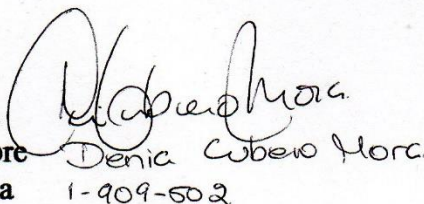 ore Denia Cubero Mora.
a 1-909-502